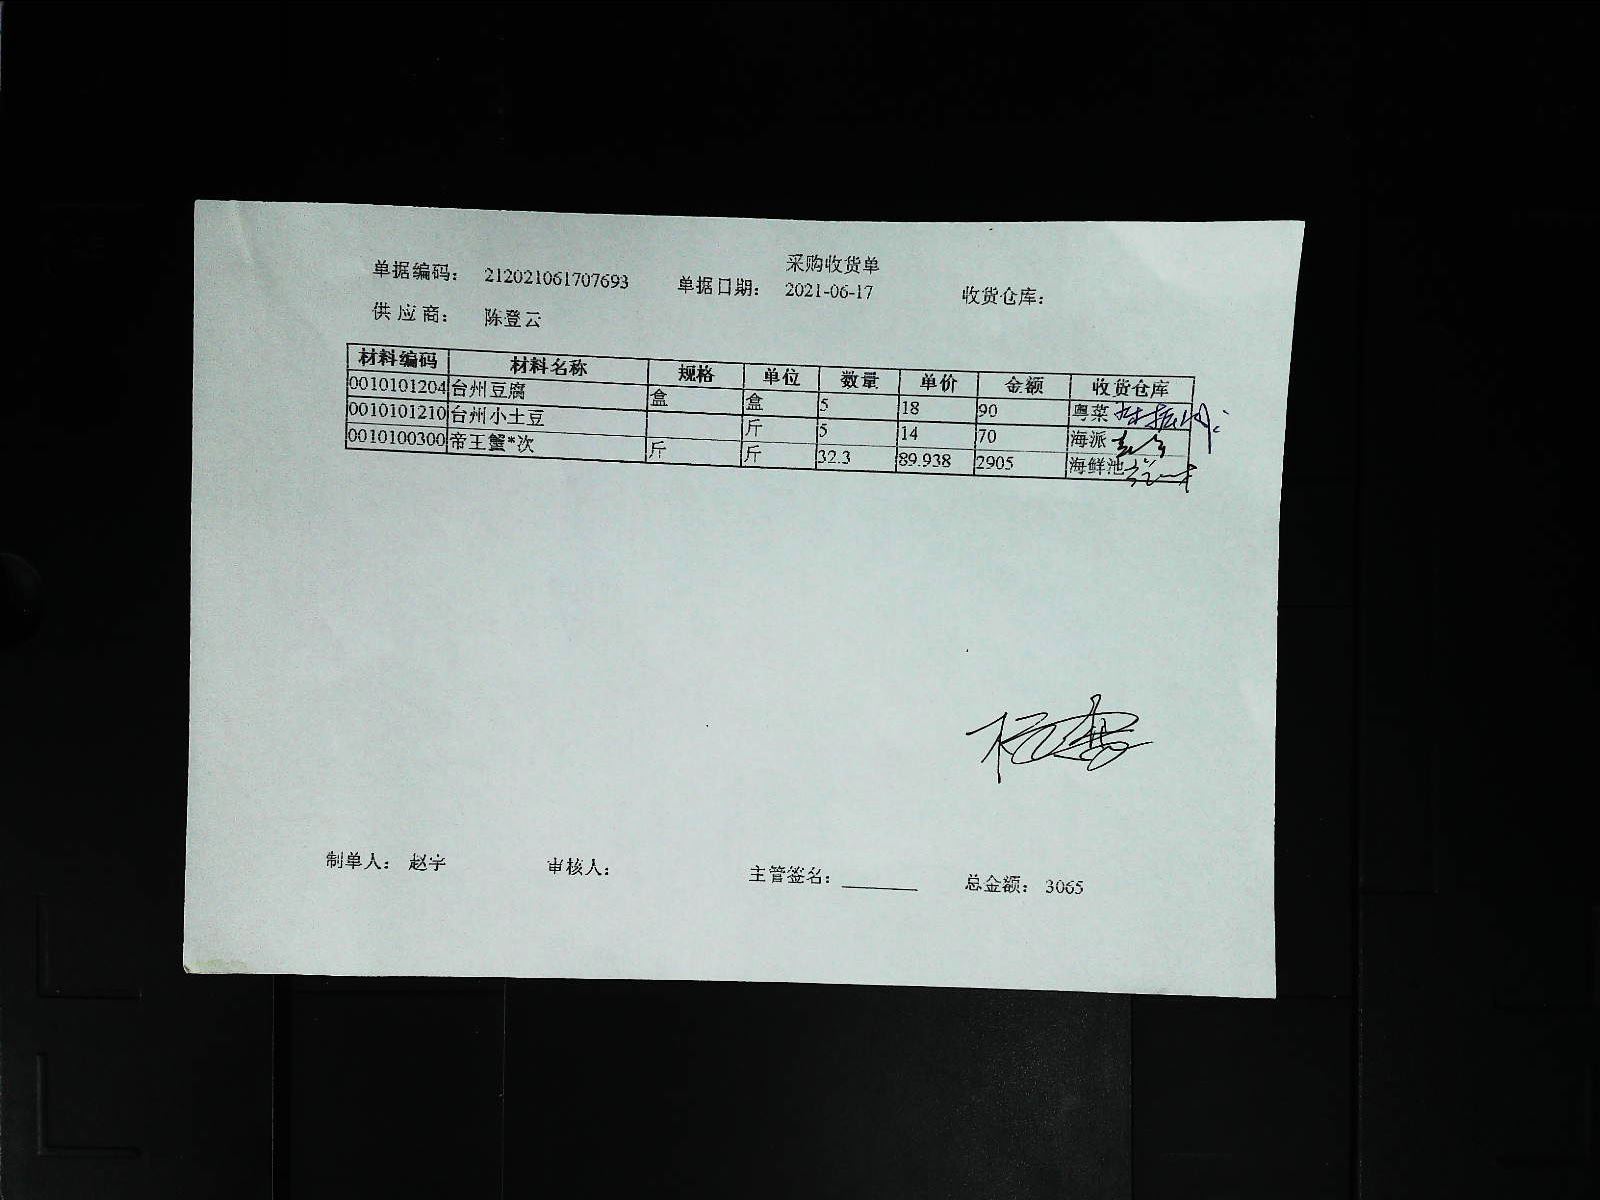 采购收货单
单据编码： 212021061707693 单据日期： 2021-06-17 收货仓库：
供应商： 陈登云
材料编码 材料名称 规格 单位 数量 单价 金额 收货仓库
0010101204 台州豆腐 盒 盒 5 18 90 粤菜
0010101210 台州小土豆 斤 5 14 70 海派
0010100300 帝王蟹*次 斤 斤 32.3 89.938 2905 海鲜池
制单人： 赵宇 审核人： 主管签名： 总金额： 3065